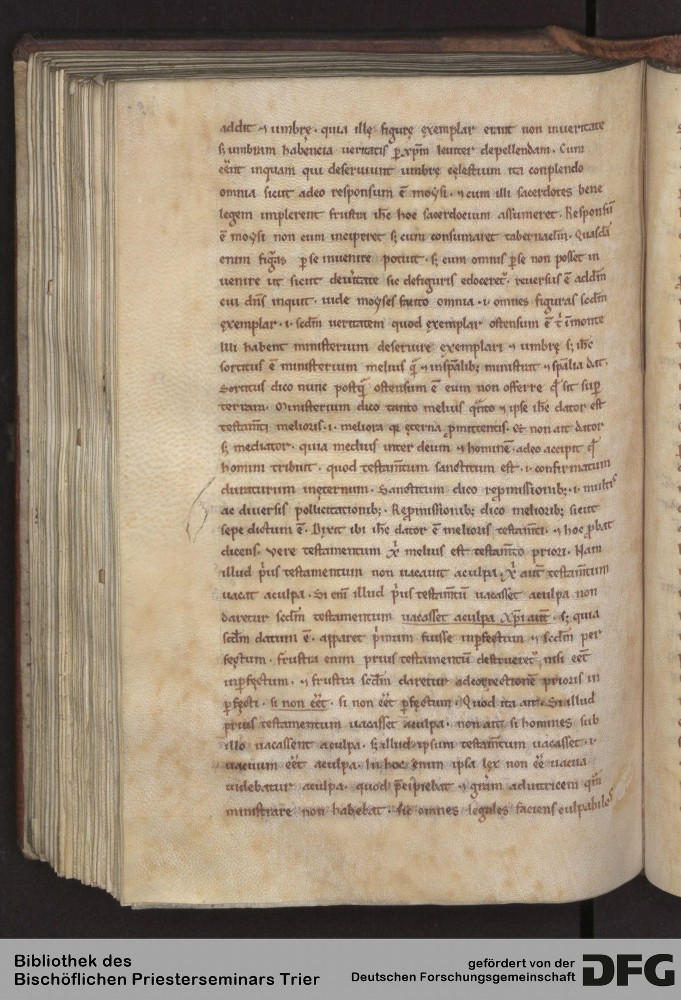 addit ⁊ umbrę. quia illę figurę exemplar erant non inueritate
s; umbram habencia ueritatis p xp̄m leuiter depellendam. Cum
eēnt inquam qui deseruiunt umbrę cęlestium ita conplendo
omnia sicut adeo responsum ē moẏsi. ⁊ cum illi sacerdotes bene
legem implerent frustra ihc̄ hoc sacerdocium assumeret. Responsū
ē moẏsi non cum inciperet s; cum consumaret tabernaclm̄. Quasdā
enim figͣs p se inuenire potuit. s; cum omnis p se non posset in
uenire ut sicut deuͥtate sic defiguris edoceret᷑. reuersus ē addm̄
cui dn̄s inquit. uide moẏses facito omnia .i. omnes figuras scdm̄
exemplar .i. scdm̄ ueritatem quod exemplar ostensum ē tͥ īmonte
Illi habent ministerium deseruire exemplari ⁊ umbrę s; ihc̄
sortitus ē ministerium melius qͣ̄ ⁊ inspālib; ministrat ⁊ spālia dat.
Sortitus dico nunc postqͣ̄ ostensum ē eum non offerre qͥ sit sup
terram. Ministerium dico tanto melius qͣnto ⁊ ipse ihc̄ dator est
testam̄ti melioris .i. meliora qͥ ęterna pͥmittentis. Et non ait dator
s; mediator. quia medius inter deum ⁊ hominē. adeo accipit qͥ
homini tribuit. quod testam̄tum sanctitum est .i. confirmatum
duraturum inęternum. Sanctitum dico repromissionib; .i. multis
ac diuersis pollicitationib;. Repromissionib; dico meliorib; sicut
sepe dictum ē. Dixit ibi ihc̄ dator ē melioris testam̄ti. ⁊ hoc pbat
dicens. Vere testamentum xͥ melius est testam̄to priori. Nam
illud pͥus testamentum non uacauit aculpa. xͥ aut̄ testam̄tum
uacat aculpa. Si eni illud pͥus testam̄tū uacasset aculpa non
daretur scdm̄ testamentum uacasset aculpa xp̄i aut̄. s; quia
scdm̄ datum ē. apparet pͥmum fuisse inperfectum ⁊ scdm̄ per
fectum. frustra enim prius testamentū destrueret᷑ nisi eēt
inpfectum. ⁊ frustra scdm̄ daretur adcorrectionē prioris in
pfecti. si non eēt. si non eēt pfectum. Quod ita ait. Si illud
prius testamentum uacasset aculpa. non ait si homines sub
illo uacassent aculpa. s; illud ipsum testam̄tum uacasset .i.
uacuum eēt aculpa. In hoc enim ipsa lex non eē uacua
uidebatur aculpa. quod p̄cipiebat ⁊ grām adiutricem qm̄
ministrare non habebat. sic omnes legales faciens culpabiles
Bibliothek des
Bischöflichen Priesterseminars Trier
gefördert von der
Deutschen Forschungsgemeinschaft
DFG